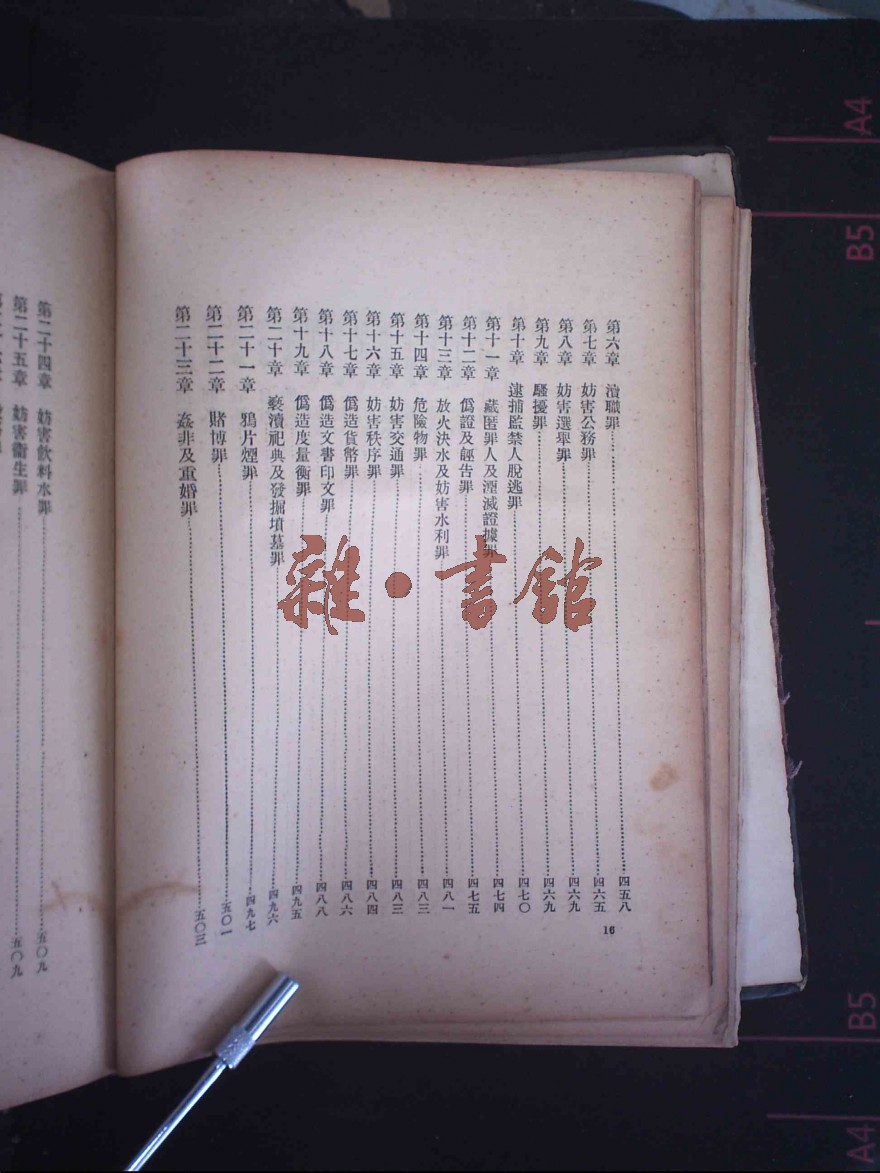 第六章　瀆職罪…………四五八
第七章　妨害公務罪…………四六五
第八章　妨害選舉罪…………四六九
第九章　騷擾罪…………四六九
第十章　逮捕監禁人脫逃罪…………四七〇
第十一章　藏匿罪人及湮滅證據罪…………四七四
第十二章　僞證及誣告罪…………四七五
第十三章　放火決水及妨害水利罪…………四八一
第十四章　危險物罪…………四八三
第十五章　妨害交通罪…………四八三
第十六章　妨害秩序罪…………四八四
第十七章　僞造貨幣罪…………四八六
第十八章　僞造文書印文罪…………四八八
第十九章　僞造度量衡罪…………四九五
第二十章　褻瀆祀典及發掘墳墓罪…………四九六
第二十一章　鴉片煙罪…………四九七
第二十二章　賭博罪…………五〇一
第二十三章　姦非及重婚罪…………五〇三
16
第二十四章　妨害飲料水罪…………五〇九
第二十五章　妨害衞生罪…………五〇九
雜·書館
A4
B5
B5
A4